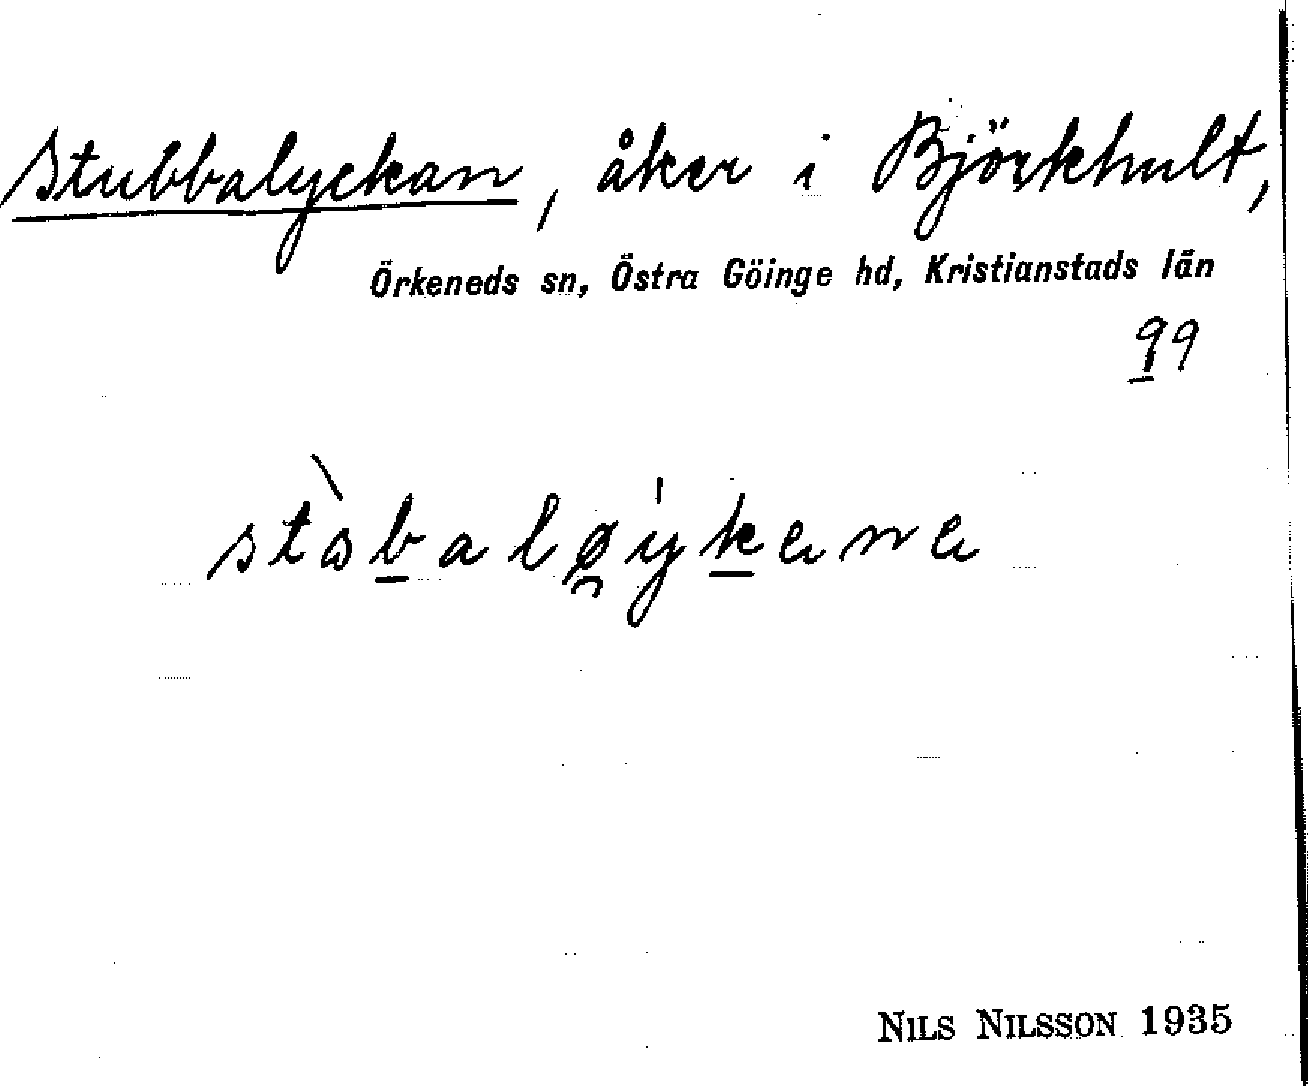 Stubbalyckan, åker i Björkhult,
Örkeneds sn, Östra Göinge hd, Kristianstads län
99
NILS NILSSON 1935